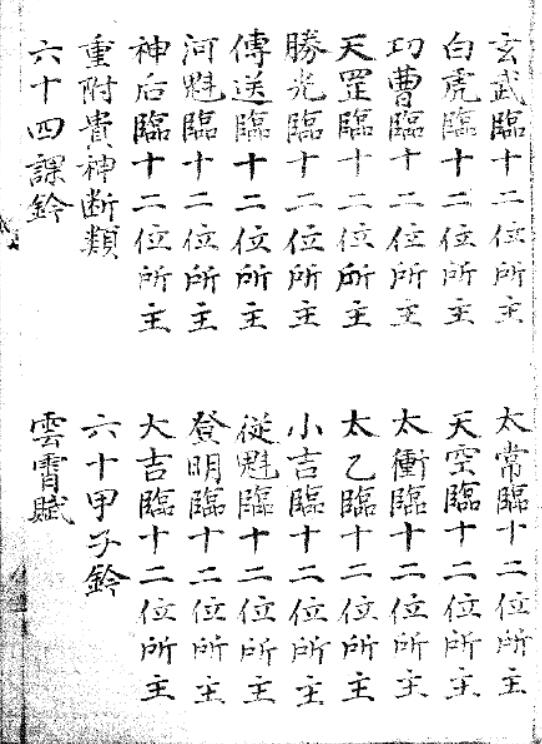 玄武臨十二位所主
太常臨十二位所主
白虎臨十二位所主
天空臨十二位所主
功曹臨十二位所主
太衝臨十二位所主
天罡臨十二位所主
太乙臨十二位所主
勝光臨十二位所主
小吉臨十二位所主
傳送臨十二位所主
從魁臨十二位所主
河魁臨十二位所主
登明臨十二位所主
神后臨十二位所主
大吉臨十二位所主
重附貴神断類
六十甲子鈐
六十四課鈐
雲霄賦